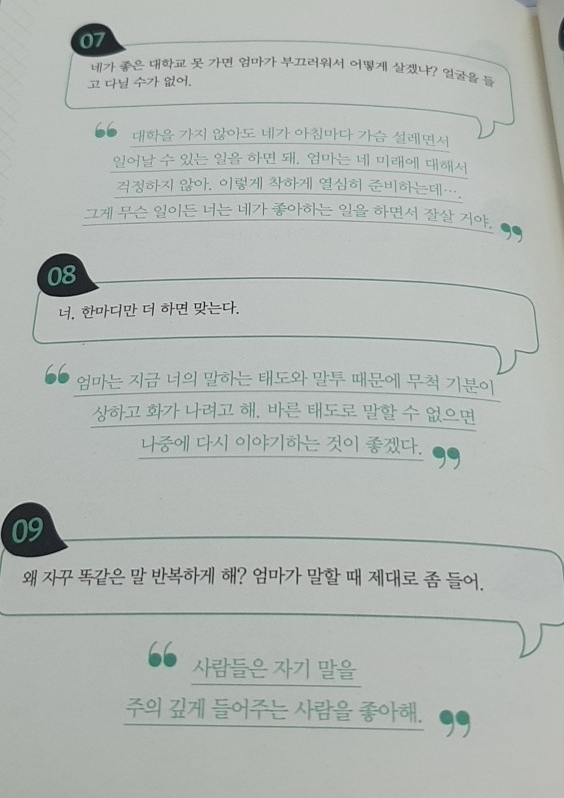 07
네가 좋은 대학교 못 가면 엄마가 부끄러워서 어떻게 살겠냐? 얼굴을 들
고 다닐 수가 없어.
“ 대학을 가지 않아도 네가 아침마다 가슴 설레면서
일어날 수 있는 일을 하면 돼. 엄마는 네 미래에 대해서
걱정하지 않아. 이렇게 착하게 열심히 준비하는데….
그게 무슨 일이든 너는 네가 좋아하는 일을 하면서 잘살 거야. ”
08
너, 한마디만 더 하면 맞는다.
“ 엄마는 지금 너의 말하는 태도와 말투 때문에 무척 기분이
상하고 화가 나려고 해. 바른 태도로 말할 수 없으면
나중에 다시 이야기하는 것이 좋겠다. ”
09
왜 자꾸 똑같은 말 반복하게 해? 엄마가 말할 때 제대로 좀 들어.
“ 사람들은 자기 말을
주의 깊게 들어주는 사람을 좋아해. ”